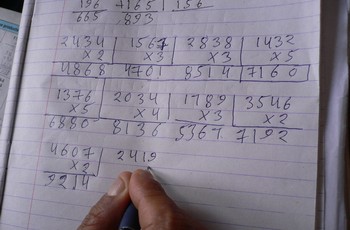 196 7165 156
665 893
2434 1567 2838 1432
×2 ×3 ×3 ×5
4868 4701 8514 7160
1376 2034 1789 3546
×5 ×4 ×3 ×2
6880 8136 5367 7192
4607 2419
×2
9214